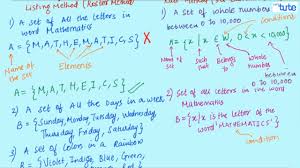 Listing Method (Roster Method)
1) A set of All the letters in
word Mathematics
A = {M, A, T, H, E, M, A, T, I, C, S} X
Name of
the set
Elements
A = {M, A, T, H, E, I, C, S}
2) A set of All the Days in a week
B = {Sunday, Monday Tuesday, Wednesday,
Thursday Friday, Saturday}
3) A set of Colors in a Rainbow
{Violet, Indigo, Blue, Green,
1) A set of Whole numbers
between 0 to 10,000
A = {x | x ∈ W, 0 < x < 10,000}
Name of
Set
such
that
belongs
to
conditions
2) A set of All letters in the word
Mathematics
B = {x | x is the letter of the
word 'MATHEMATICS'}
condition
tute